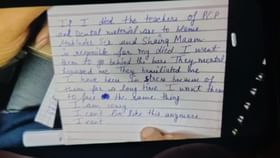 If I died the teachers of PCP
and Dental material are to blame
Sir and Maam
is responsible for my died I want
them to go behind the bars They mental
me They humiliated me
I have been in stress because of
them for a long time I want them
to face the same thing
I am sorry
I can't live like this anymore.
I cant